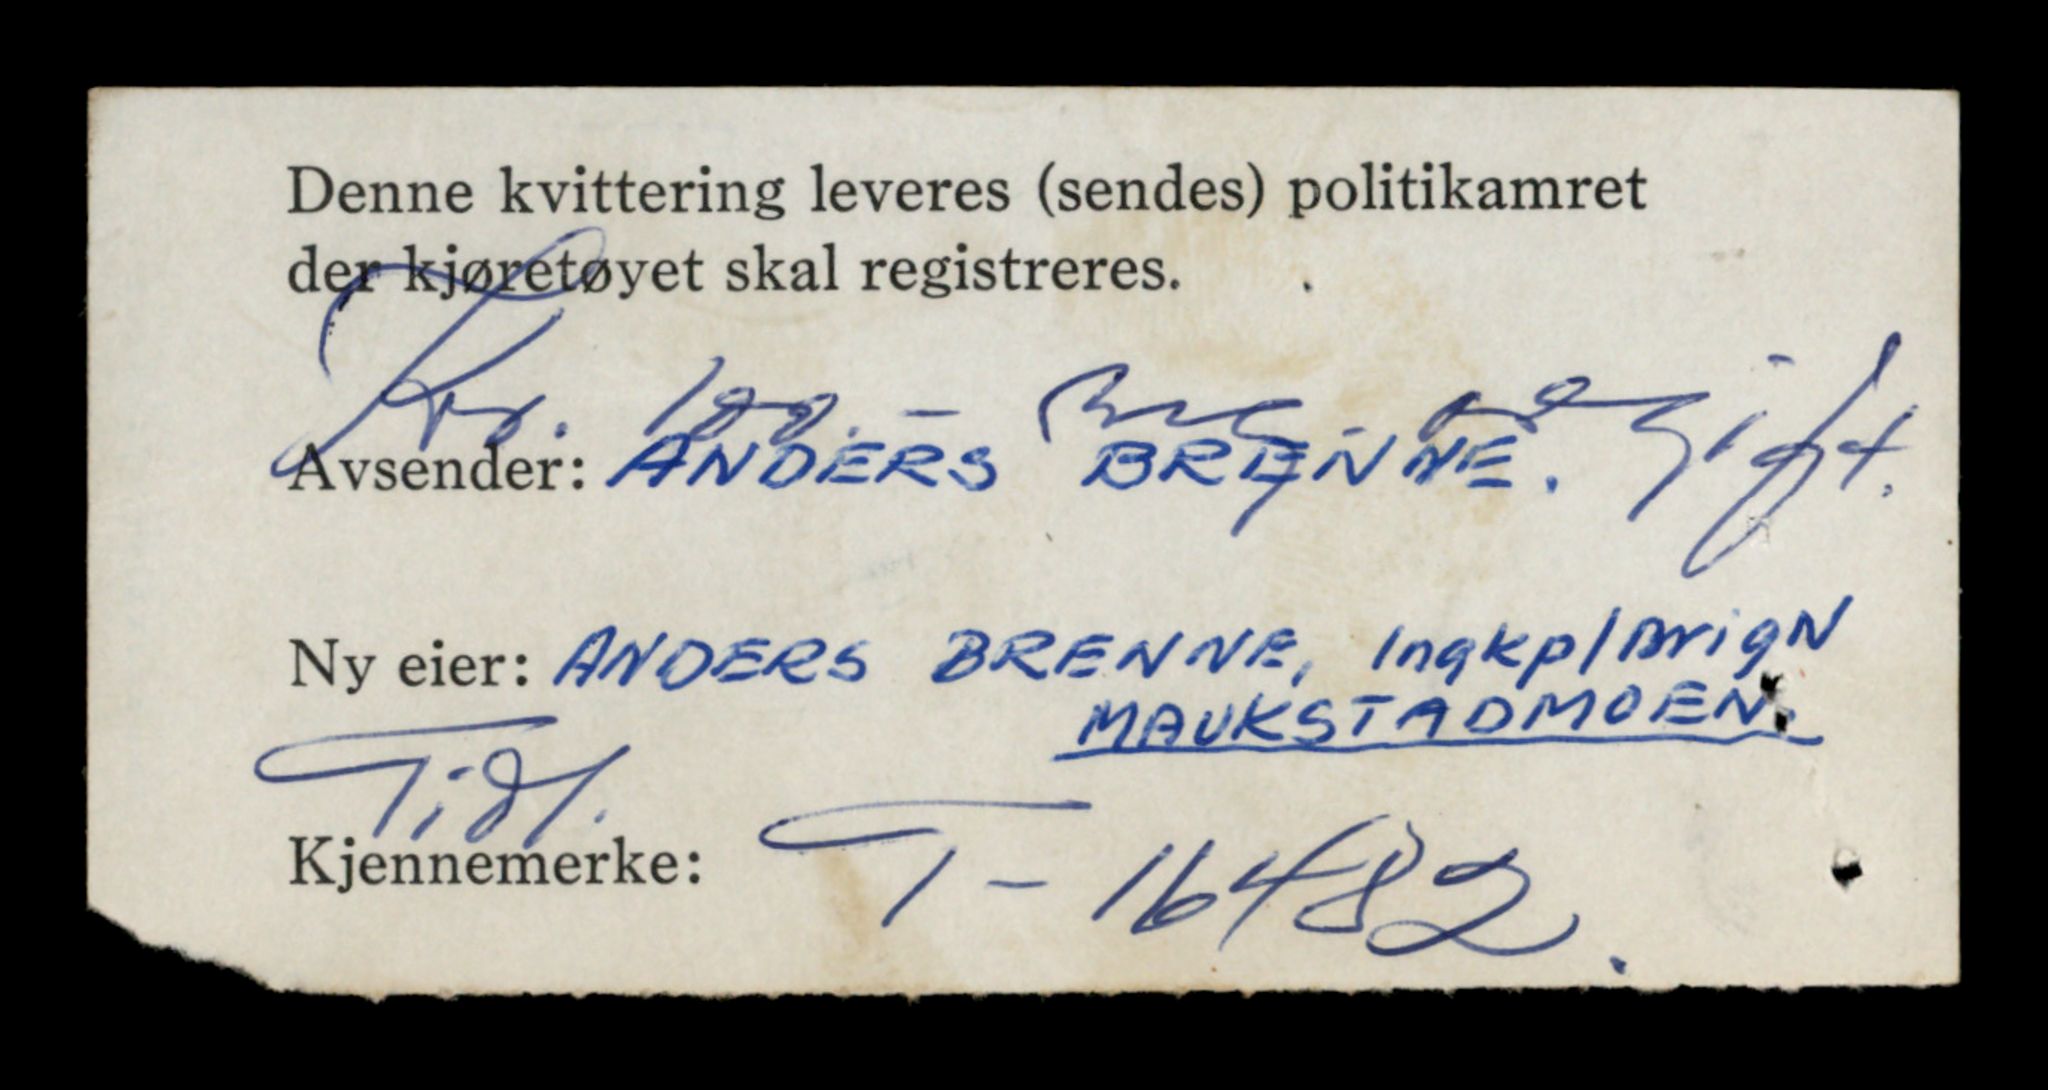 Denne kvittering leveres (sendes) politikamret
der kjøretøyet skal registreres.
Kr. 100.- avgift.
Avsender: ANDERS BRENNE.
Ny eier: ANDERS BRENNE, Ingkp/BrigN
MAUKSTADMOEN.
Tidl.
Kjennemerke: T-16482.